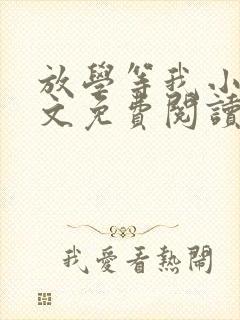 放學等我小
文免費閱讀
我愛看熱鬧